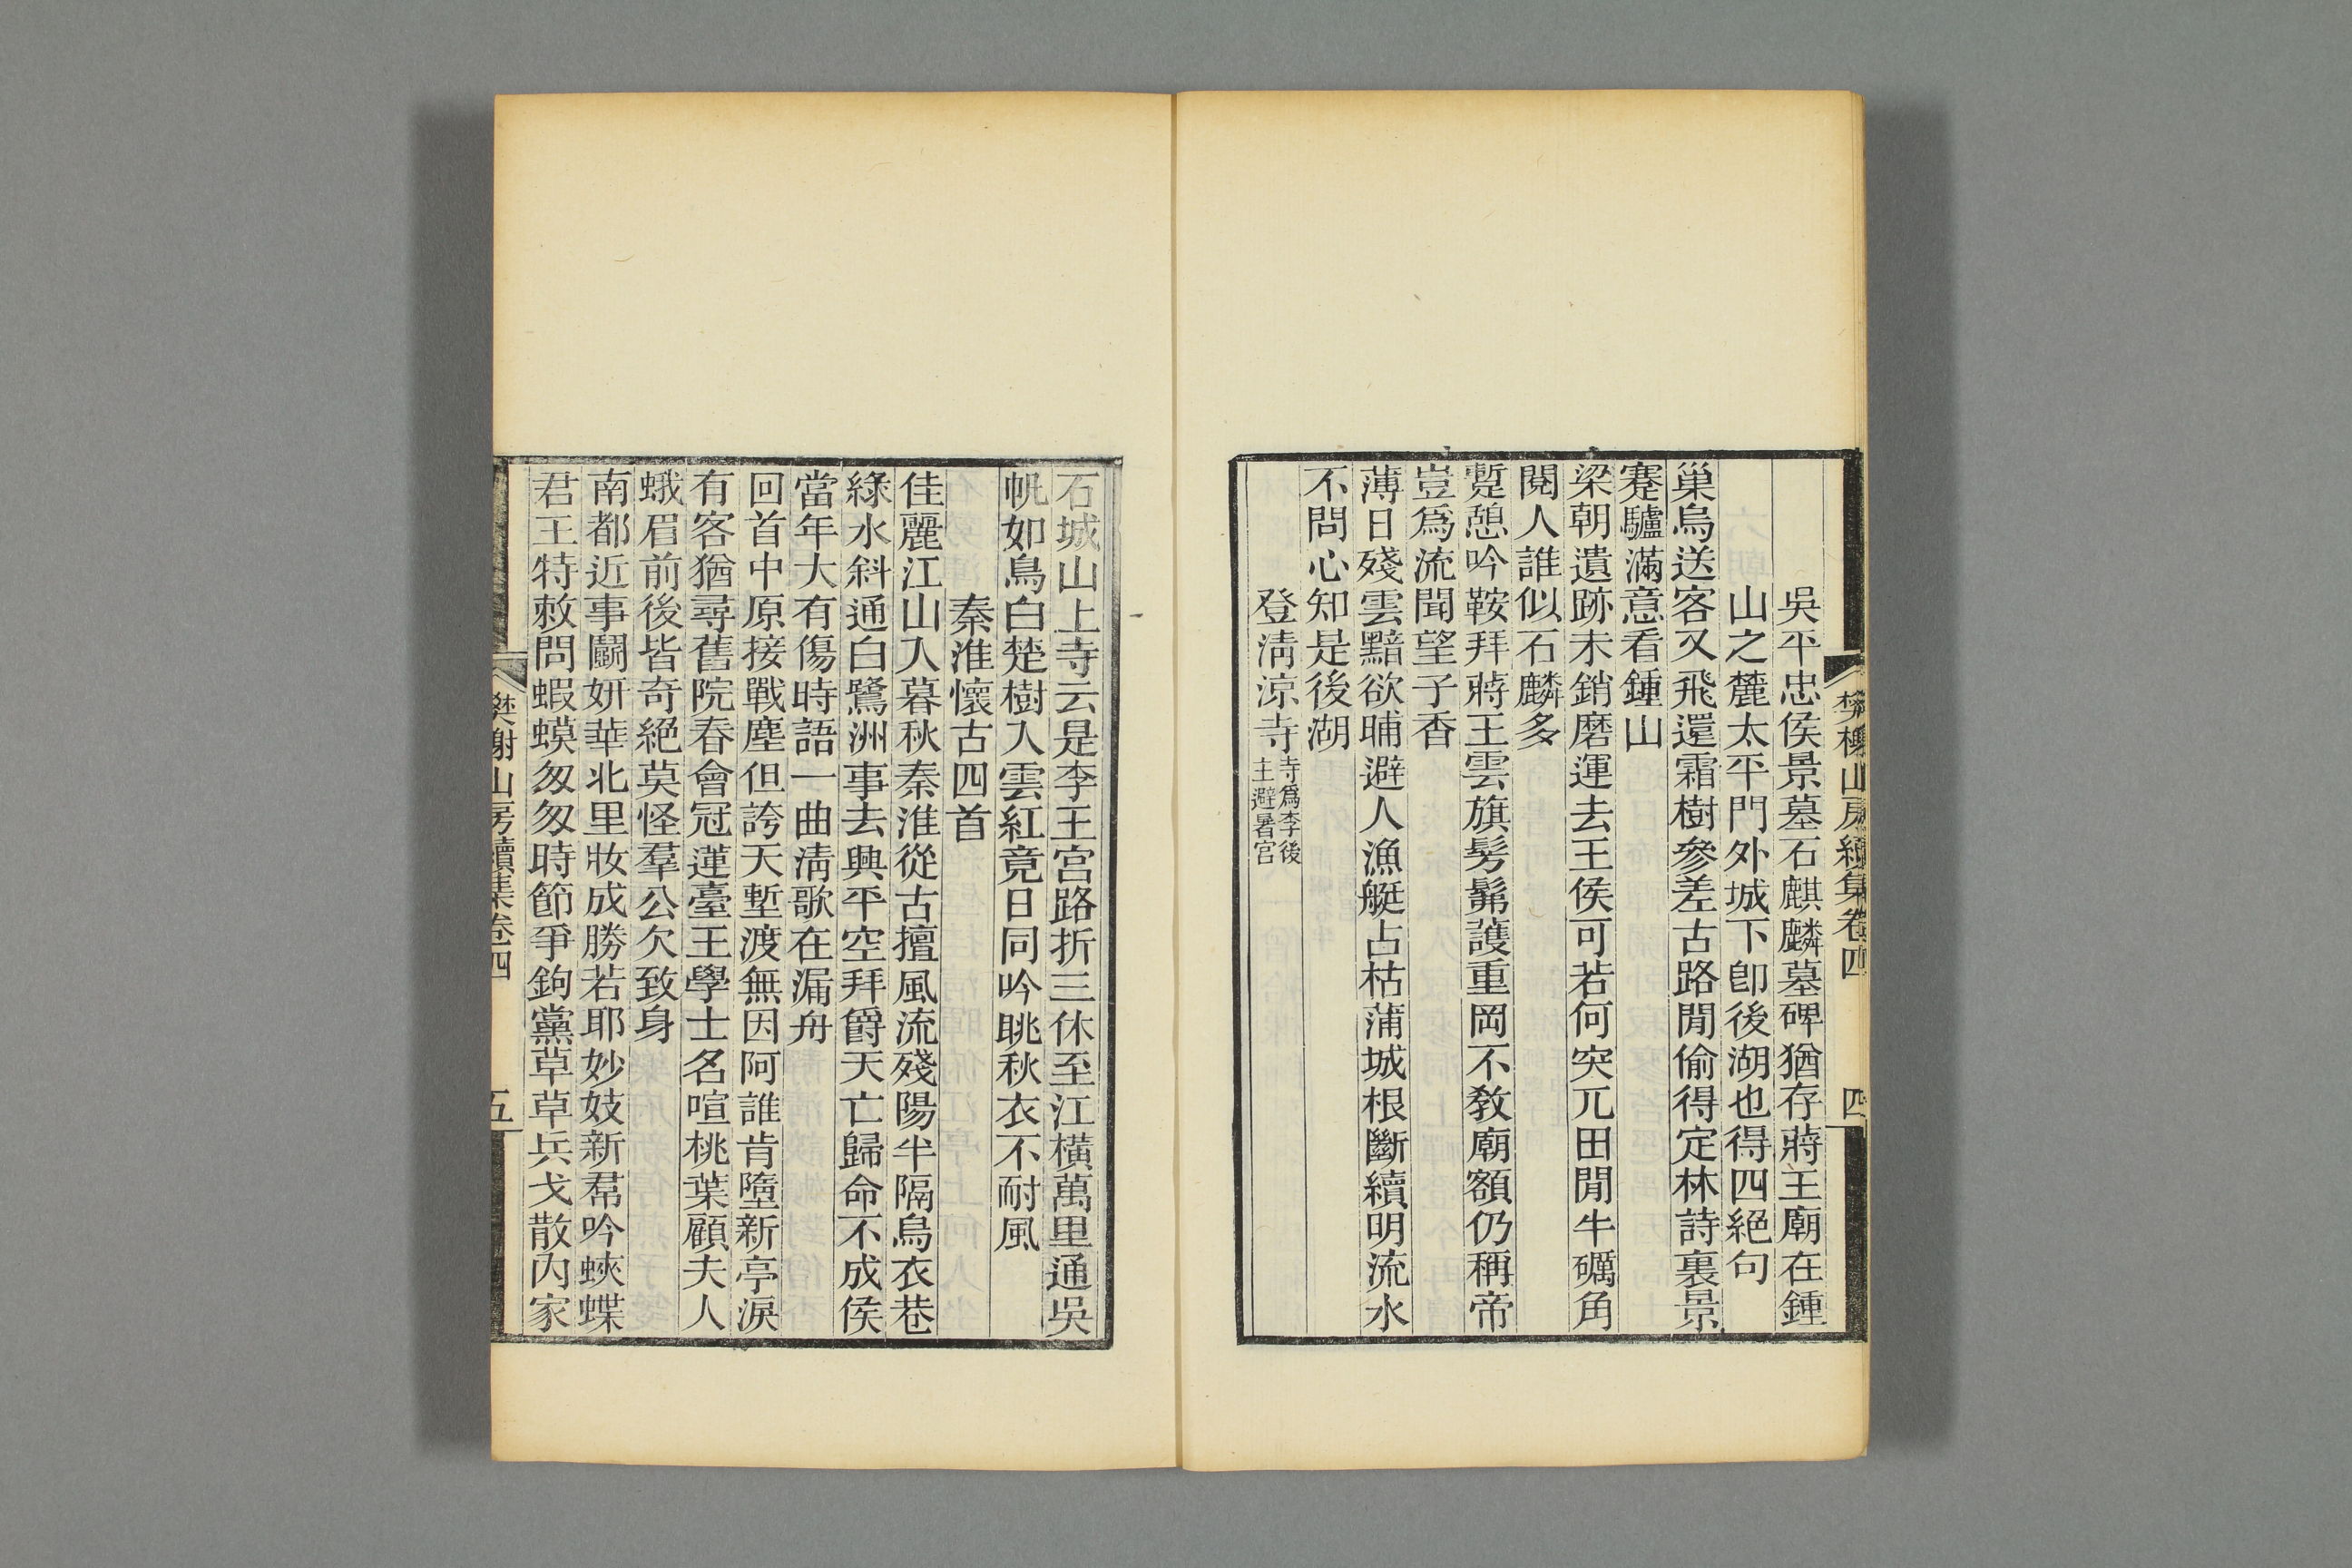 樊榭山房續集卷四
四
吳平忠侯景墓石麒麟墓碑猶存蔣王廟在鍾
山之麓太平門外城下卽後湖也得四絕句
巢烏送客又飛還霜樹參差古路閒偷得定林詩裏景
蹇驢滿意看鍾山
梁朝遺跡未銷磨運去王侯可若何突兀田閒牛礪角
閱人誰似石麟多
蹔憩吟鞍拜蔣王雲旗髣髴護重岡不敎廟額仍稱帝
豈爲流聞望子香
薄日殘雲黯欲晡避人漁艇占枯蒲城根斷續明流水
不問心知是後湖
登淸涼寺寺爲李後
主避暑宮
石城山上寺云是李王宮路折三休至江橫萬里通吳
帆如鳥白楚樹入雲紅竟日同吟眺秋衣不耐風
秦淮懷古四首
佳麗江山入暮秋秦淮從古擅風流殘陽半隔烏衣巷
綠水斜通白鷺洲事去興平空拜爵天亡歸命不成侯
當年大有傷時語一曲淸歌在漏舟
回首中原接戰塵但誇天塹渡無因阿誰肯墮新亭淚
有客猶尋舊院春會冠蓮臺王學士名喧桃葉顧夫人
蛾眉前後皆奇絕莫怪羣公欠致身
南都近事鬭妍華北里妝成勝若耶妙妓新帬吟蛺蝶
君王特敕問蝦蟆匆匆時節爭鉤黨草草兵戈散內家
樊榭山房續集卷四
五